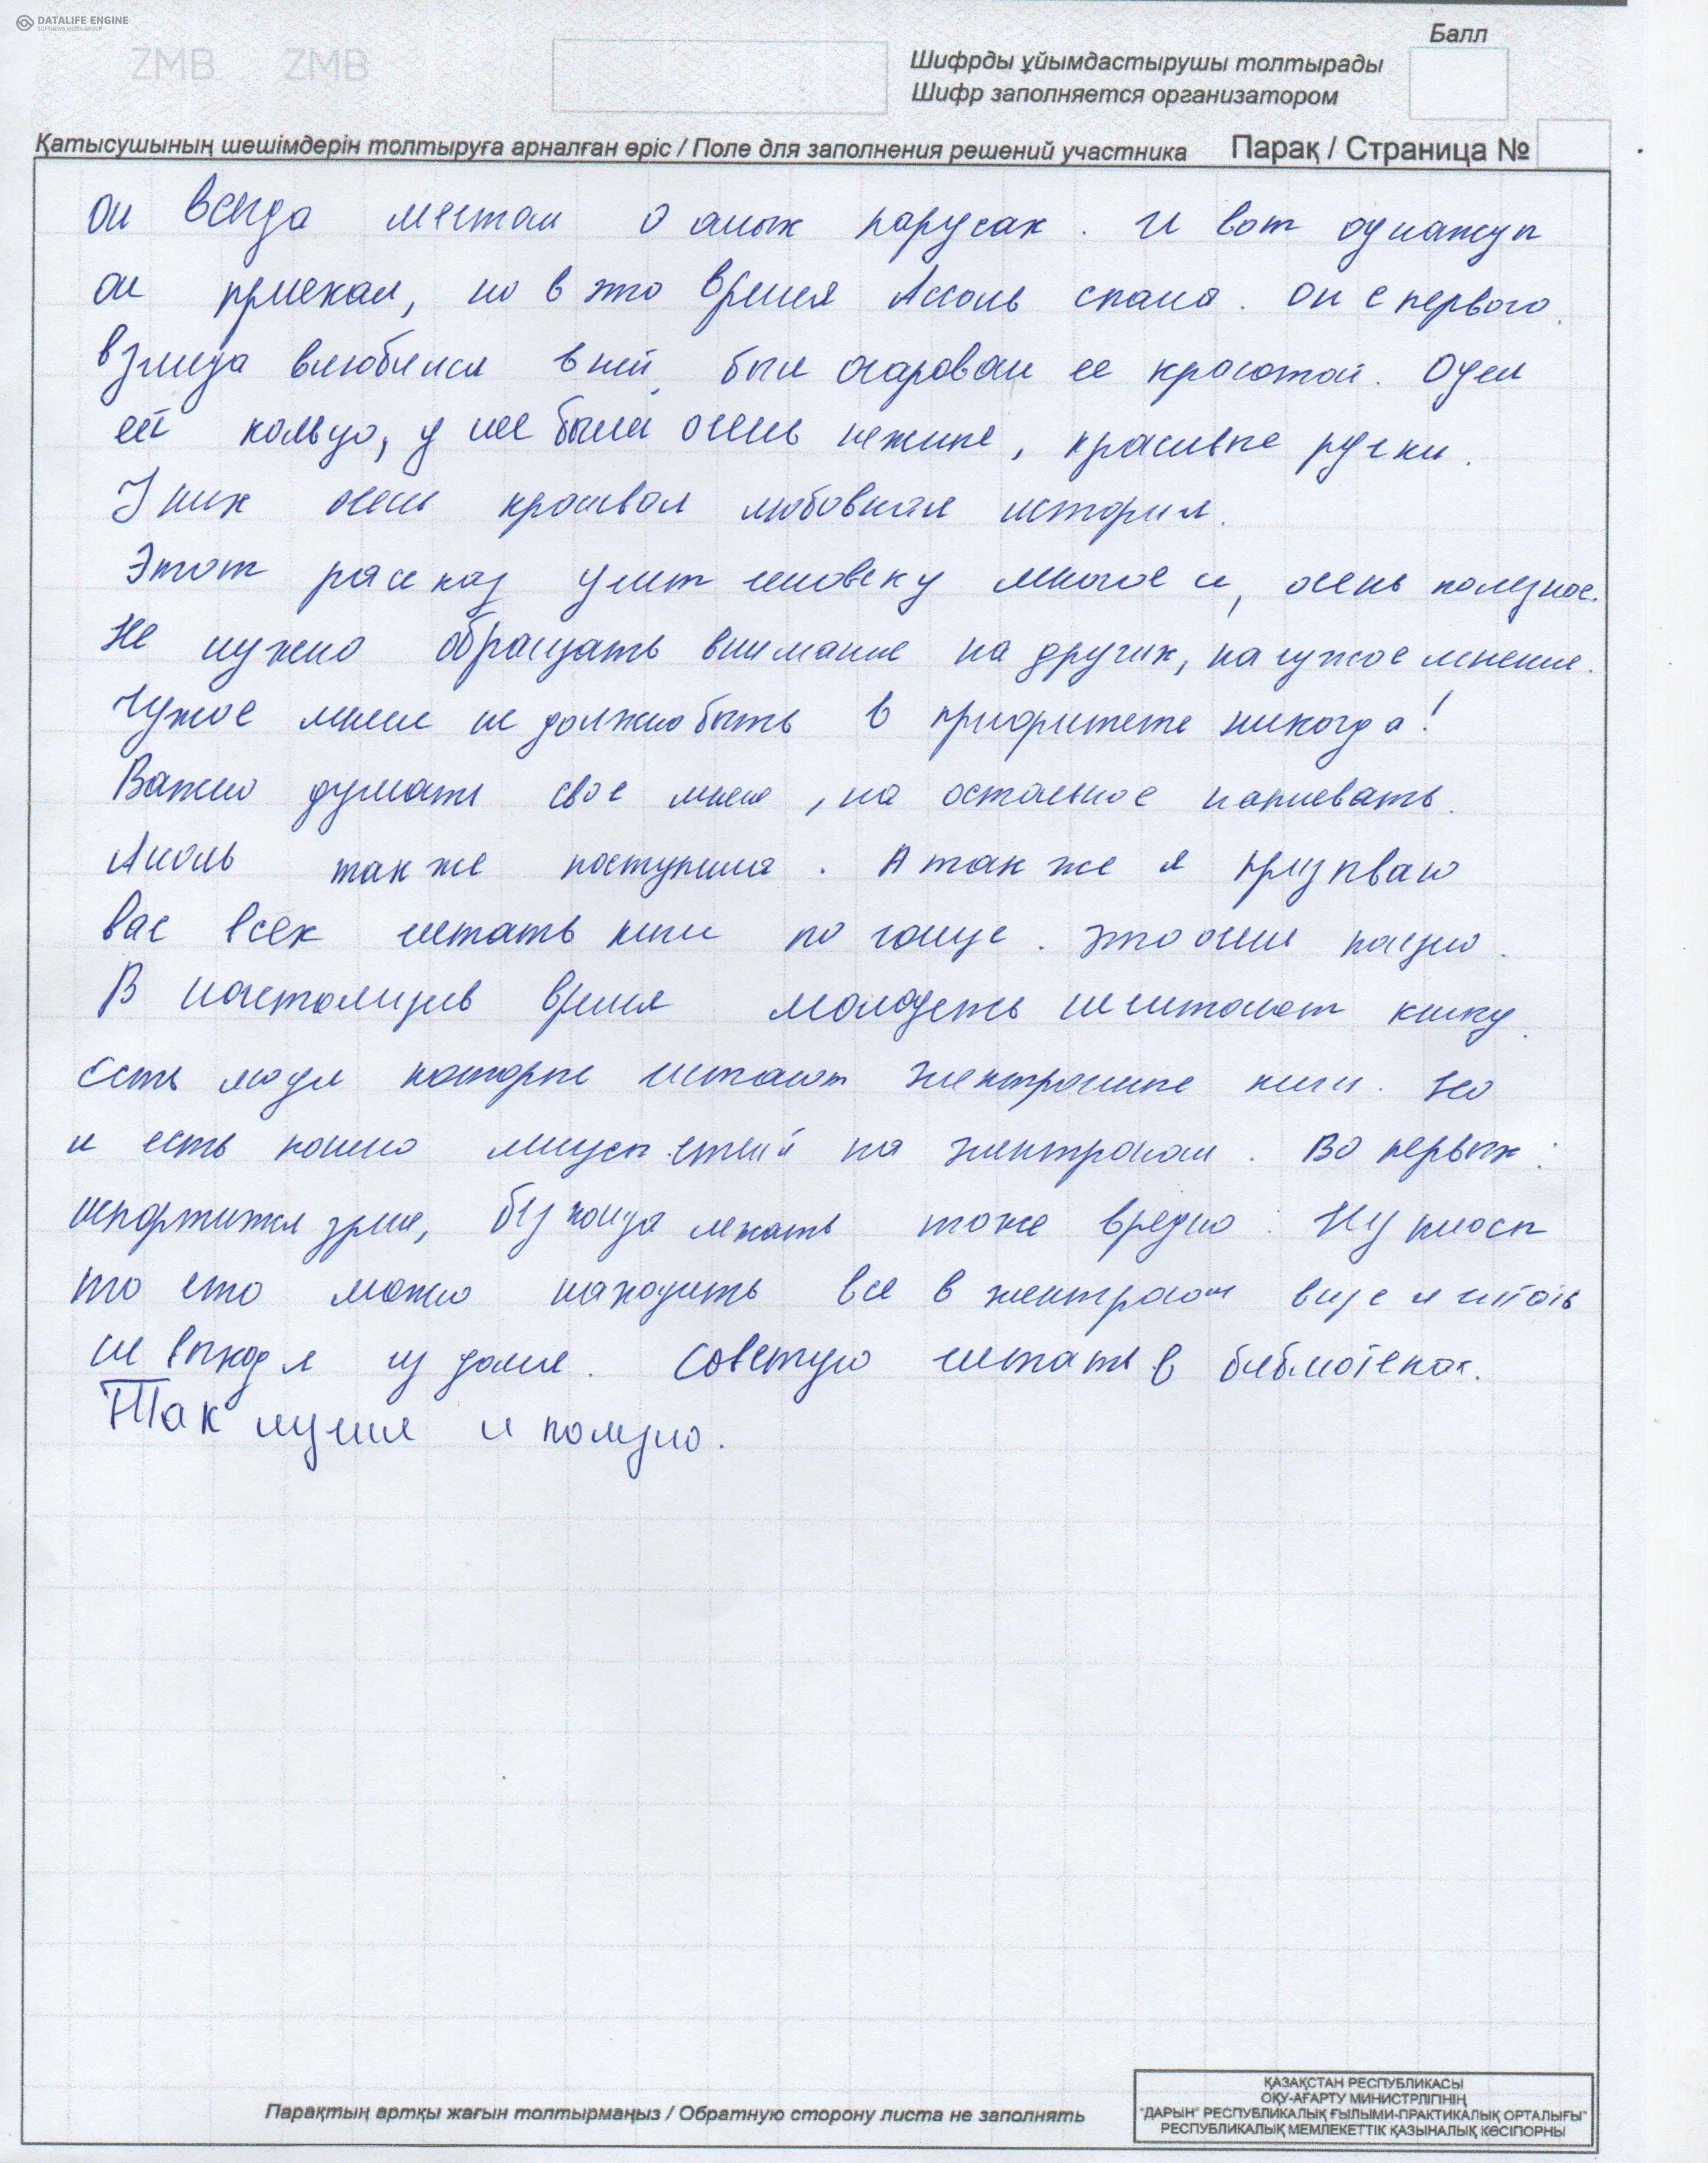 DATALIFE ENGINE
SOFTNEWS MEDIA GROUP
ZMB ZMB
Балл
Шифрды ұйымдастырушы толтырады
Шифр заполняется организатором
Қатысушының шешімдерін толтыруға арналған өріс / Поле для заполнения решений участника Парақ / Страница №
он всегда мечтал о алых парусах. И вот однажды
он приехал, но в это время Ассоль спала. Он с первого
взгляда влюбился в ней, был очарован ее красотой. Одел
ей кольцо, у нее были очень нежные, красивые ручки.
У них очень красивая любовная история.
Этот рассказ учит человеку многое и, очень полезное.
Не нужно обращать внимание на других, на чужое мнение.
Чужое мнение не должно быть в приоритете никогда!
Важно думать свое мнение, на остальное наплевать.
Ассоль также поступила. А также я призываю
вас всех читать книги по чаще. Это очень полезно.
В настоящее время молодежь не читает книгу.
Есть люди которые читают электронные книги. Но
и есть конечно минусы на электроном. Во первых:
испортится зрение, без конца лежать тоже вредно. Ну плюсы
то что можно находить все в электроном виде и читать
не выходя из дома. Советую читать в библиотеках.
Так лучше и полезно.
Парақтың артқы жағын толтырмаңыз / Обратную сторону листа не заполнять
ҚАЗАҚСТАН РЕСПУБЛИКАСЫ
ОҚУ-АҒАРТУ МИНИСТРЛІГІНІҢ
"ДАРЫН" РЕСПУБЛИКАЛЫҚ ҒЫЛЫМИ-ПРАКТИКАЛЫҚ ОРТАЛЫҒЫ"
РЕСПУБЛИКАЛЫҚ МЕМЛЕКЕТТІК ҚАЗЫНАЛЫҚ КӘСІПОРНЫ